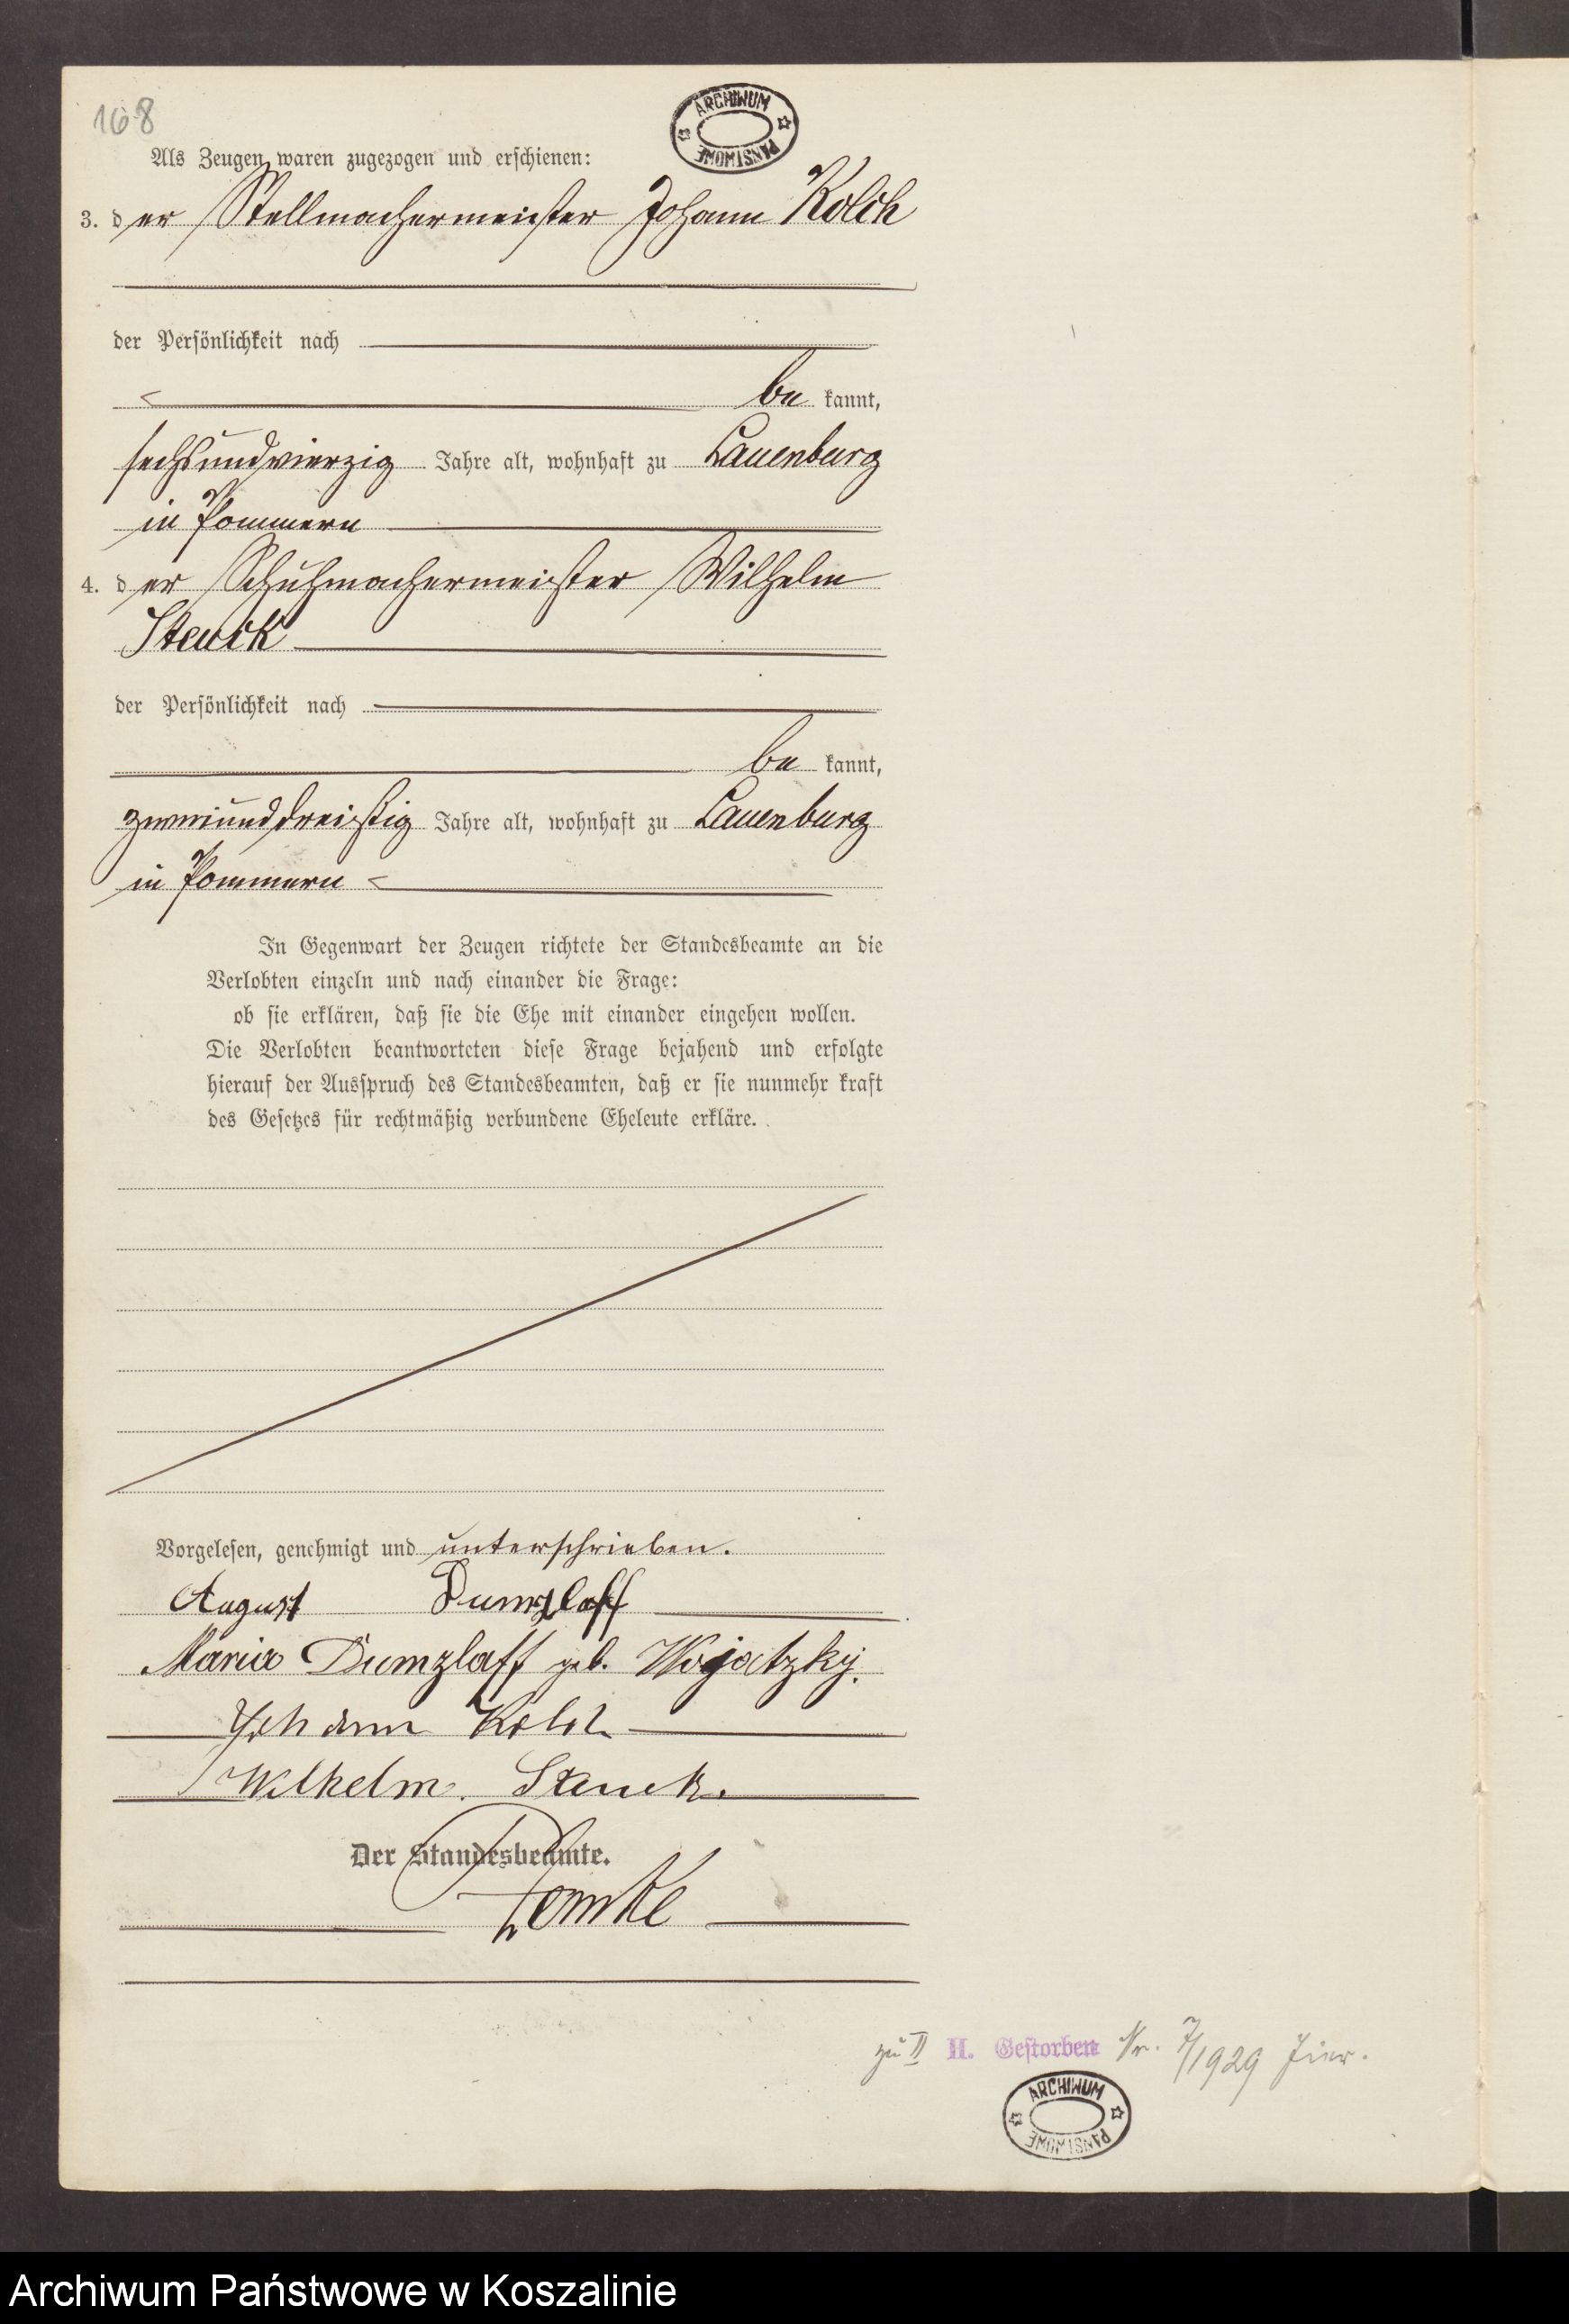 168
ARCHIWUM PAŃSTWOWE
Als Zeugen waren zugezogen und erschienen:
3. der Stellmachermeister Johann Kolch
der Persönlichkeit nach
be kannt,
sechsundvierzig Jahre alt, wohnhaft zu Lauenburg
in Pommern
4. der Schuhmachermeister Wilhelm
Stenck
der Persönlichkeit nach
be kannt,
zweiunddreißig Jahre alt, wohnhaft zu Lauenburg
in Pommern
In Gegenwart der Zeugen richtete der Standesbeamte an die
Verlobten einzeln und nach einander die Frage:
ob sie erklären, daß sie die Ehe mit einander eingehen wollen.
Die Verlobten beantworteten diese Frage bejahend und erfolgte
hierauf der Ausspruch des Standesbeamten, daß er sie nunmehr kraft
des Gesetzes für rechtmäßig verbundene Eheleute erkläre.
Vorgelesen, genehmigt und unterschrieben.
August Dumzlaff
Maria Dumzlaff geb. Wojatzky.
Johann Kolch
Wilhelm Stenck.
Der Standesbeamte.
zu II II. Gestorben Nr. 7/1929 hier.
ARCHIWUM PAŃSTWOWE
Archiwum Państwowe w Koszalinie